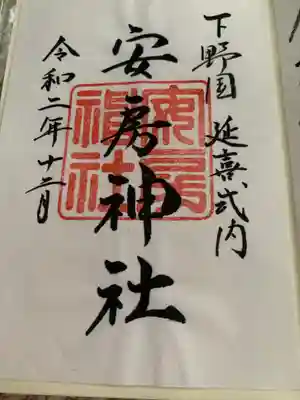 下野国 延喜式内
安房神社
安房神社
令和二年十二月